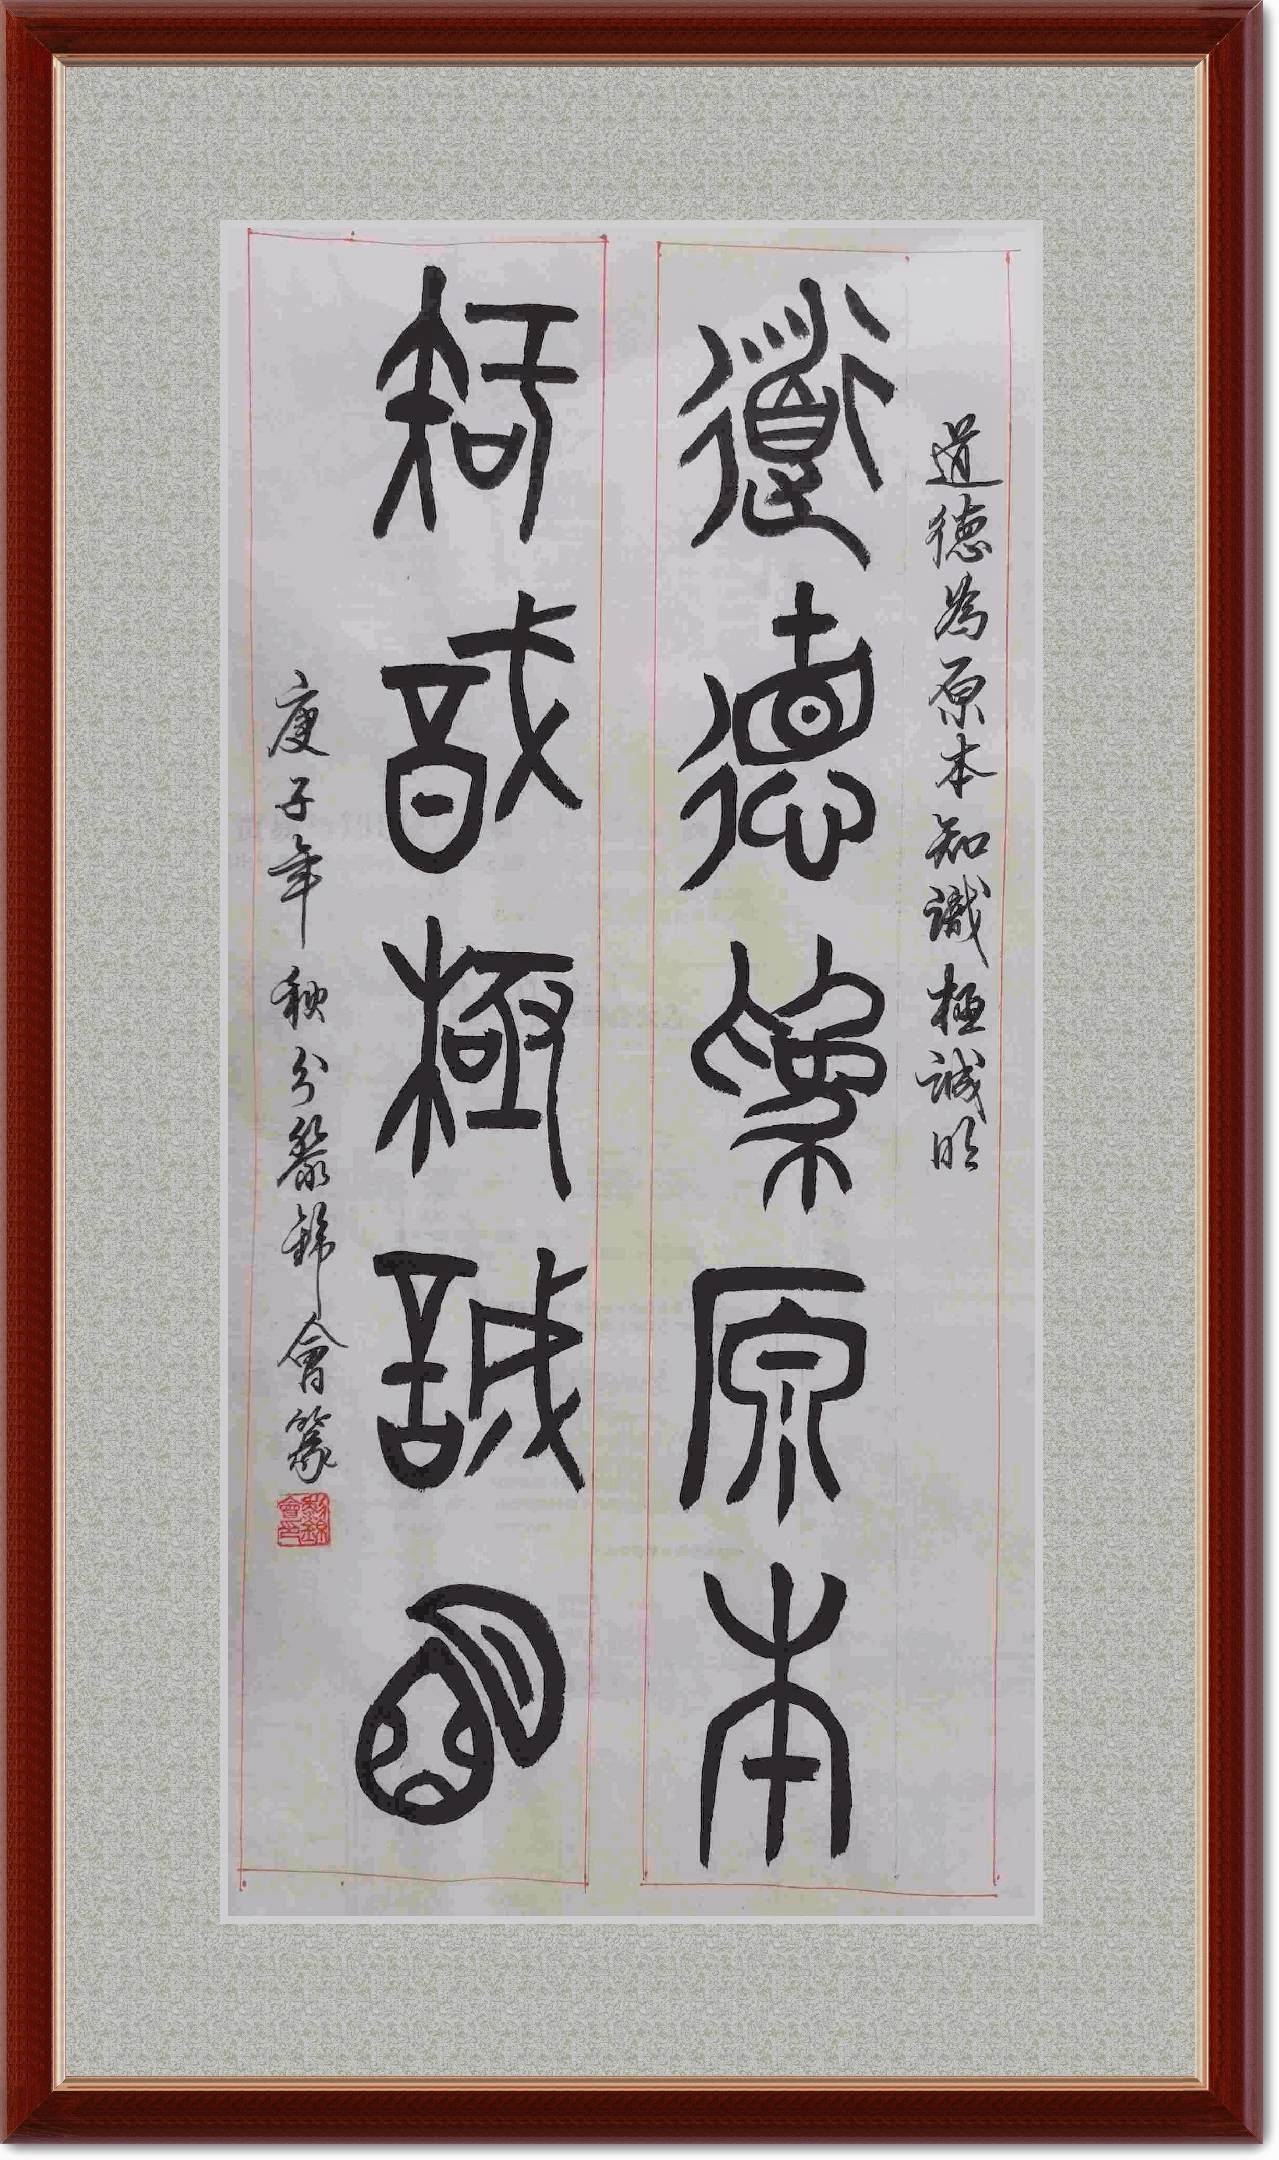 道德為原本知識極誠明
道德為原本
知識極誠明
庚子年秋分黎錦會篆